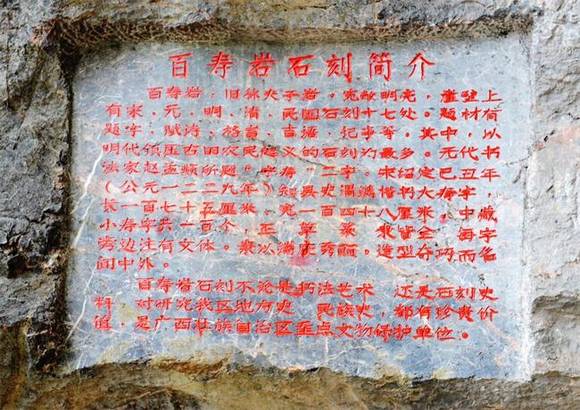 百寿岩石刻简介
百寿岩,旧称夫子岩。宽敞明亮,崖壁上
有宋、元、明、清、民国石刻十七处。题材有
题字、赋诗、格言、吉语、记事等。其中,以
明代镇压古田农民起义的石刻为最多。元代书
法家赵孟頫所题“寿”二字。宋绍定己丑年
(公元一二二九年)知县史渭满楷书大寿字,
长一百七十五厘米,宽一百四十八厘米,中藏
小寿字共一百个,正 草 篆 隶皆全,每字
旁边注有文体。造型奇巧而名
闻中外。
百寿岩石刻不论是书法艺术 还是石刻史
料,对研究我区地方史 民族史,都有珍贵价
值,是广西壮族自治区重点文物保护单位。